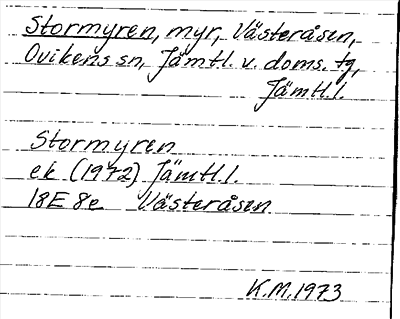 Stormyren, myr, Västeråsen,
Ovikens sn, Jämtl. v. doms. tg,
Jämtl. l.
Stormyren
ek (1972) Jämtl. l.
18E 8e Västeråsen
K.M. 1973